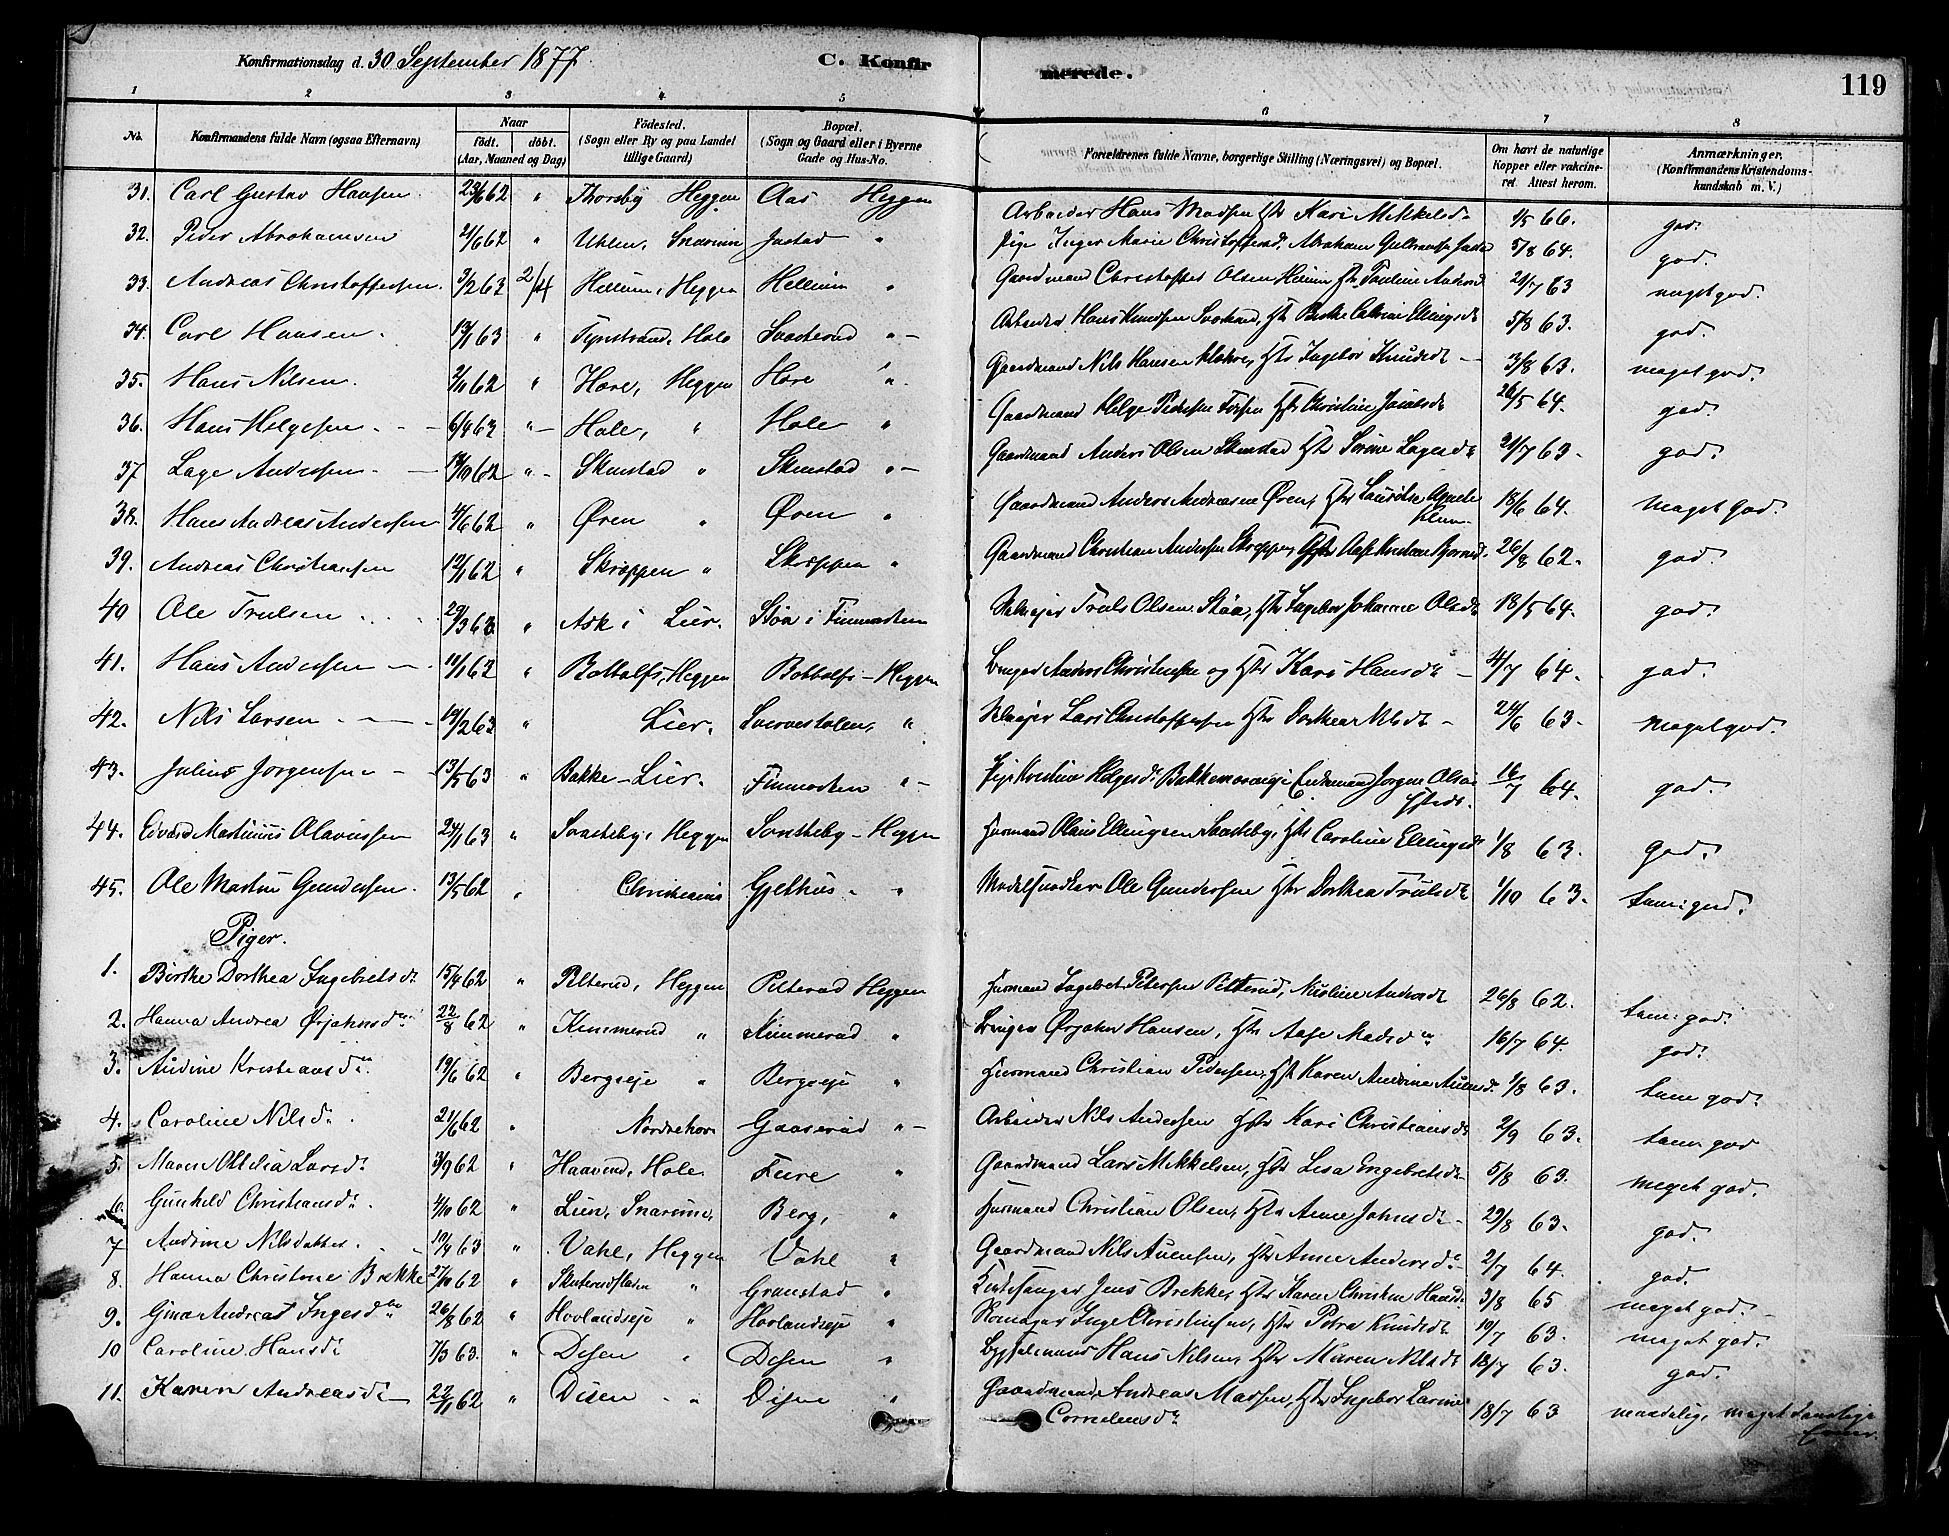 Konfirmationsdag d. 30 September 1877.
C. Konfirmerede.
119
1 2 3 4 5 6 7 8
No.
Konfirmandens fulde Navn (ogsaa Efternavn)
Naar
födt. döbt.
(Aar, Maaned og Dag)
Födested.
(Sogn eller By og paa Landet tillige Gaard)
Bopæl.
(Sogn og Gaard eller i Byerne Gade og Hus-No.
Forældrenes fulde Navne, borgerlige Stilling (Næringsvei) og Bopæl.
Om havt de naturlige Kopper eller vakcineret. Attest herom.
Anmærkninger.
(Konfirmandens Kristendomskundskab m. V.)
31. Carl Gustav Hansen 23/6 62 " Thorsby Heggen Aas Heggen Arbeider Hans Madsen Hst Kari Mikkelsd. 1/5 66. god.
32. Peder Abrahamsen 2/6 62 " Uhlen, Snarum Jostad " Pige Inger Marie Christoffersd. Abraham 5/8 64. god.
33. Andreas Christoffersen 3/2 63 2/4 Hellum, Heggen Hellum " Gaardmand Christoffer Olsen Hst. Pauline 21/7 63 maget god.
34. Carl Hansen 13/1 63 " Hole Svarterud " Arbeider Hans Knudsen Hst Berthe Catrine Ellingsdt 5/8 63. god.
35. Hans Nilsen 2/11 62 " Hære, Heggen Hære " Gaardmand Nils Hansen Hst Ingebor Knudsdt 3/8 63. maget god.
36. Hans Helgesen 6/4 63 " Hole, " Hole " Gaardmand Helge Pedersen Hst Christine Jacobsdt 26/5 64. god.
37 Lage Andersen 62 " Skinstad " Skinstad " Gaardmand Anders Olsen Skinstad Hst Sorine Lagesdt 21/7 63. god.
38. Hans Andreas Andersen 4/6 62 " Øren " Øren " Gaardmand Anders Andreasen Øren, Hst 18/6 64. maget god.
39. Andreas Christiansen 12/1 62 " Skreppen " Skreppen " Gaardmand Christian Andersen Skreppen Hst 26/8 62. god.
40 Ole Trulsen 29/3 63 " Ask i Lier. Støa i Finmarken Selveier Truls Olsen Støa, Hst Ingebor Johanne Olsdt 18/5 64. god.
41. Hans Andersen 11/1 63 " Bottolfs, Heggen Bottolfs Heggen Anders Christensen og Hst Kari Hansdt 4/7 64. god.
42. Nils Larsen 19/2 63 " Lier. " Selveier Lars Christoffersen Hst Dorthea Nilsdt 24/6 63. maget god.
43. Julius Jørgensen 13/5 63 " Bakke Lier. Finmarken " Pige Kristine Helgesd. Enkemand Jørgen Olsen 16/7 64. god.
44. Edvard Martinius Olavessen 24/1 63 " Svarteby, Heggen Svarteby Heggen Husmand Olaus Ellingsen Svarteby, Hst Caroline Ellingsd 1/8 63. god.
45. Ole Martin Gundersen 13/5 62 " Christiania Gjethus " Modelsnedker Ole Gundersen Hst Dorthea Trulsdt 1/10 63. tem: god.
Piger.
1. Birthe Dorthea Ingebretsdt 15/4 62 " Pelterud, Heggen Pelterud Heggen Husmand Ingebret Petersen Pelterud, 26/8 62. tem: god.
2. Hanna Andrea Ørjahnsd. 22/8 62 " Kimmerud " Kimmerud " Ørjahn Hansen, Hst Aase Madsd 16/7 64. god.
3. Andine Kristiansd. 19/6 62 " Bergseje " Bergseje " Husmand Christian Pedersen, Hst Karen Andrine 1/8 63. tem god.
4. Caroline Nilsd. 21/6 62 " Norderhov Gaaserud " Arbeider Nils Andersen Hst Kari Christiansdt 2/9 63. tem. god
5. Maren Ottilia Larsd. 3/9 62 " Hole Fure " Gaardmand Lars Mikkelsen, Hst Lisa Engebretsdt 5/8 63. meget god.
6. Gunhild Christiansd. 4/10 62 " Lien, Snarum, Berg, " Husmand Christian Olsen, Hst Anne Johnsdt 29/8 63. god.
7 Andrine Nilsdatter 10/4 63 " Vahl, Heggen Vahl " Gaardmand Nils Auensen, Hst Anne Andersd. 2/7 64. god.
8. Hanna Christine Brekke 27/10 62 " " Granstad " Kirkesanger Jens Brekke, Hst Karen Christine Hansd. 3/8 65 maget god.
9. Gina Andrea Ingesd. 26/8 62 " Hovlandseje " Hovlandseje " Inge Christensen, Hst Petra Knudsdt 19/7 63. maget god.
10 Caroline Hansd. 7/3 63. " Disen " Disen " Hans Nilsen, Hst Maren Nilsdt 18/7 63. god.
11. Karen Andreasdt 22/1 62 " Disen " Disen " Gaardmand Andreas Madsen, Hst Ingebor Larine Cornelensd. 18/7 63 maadelig, maget